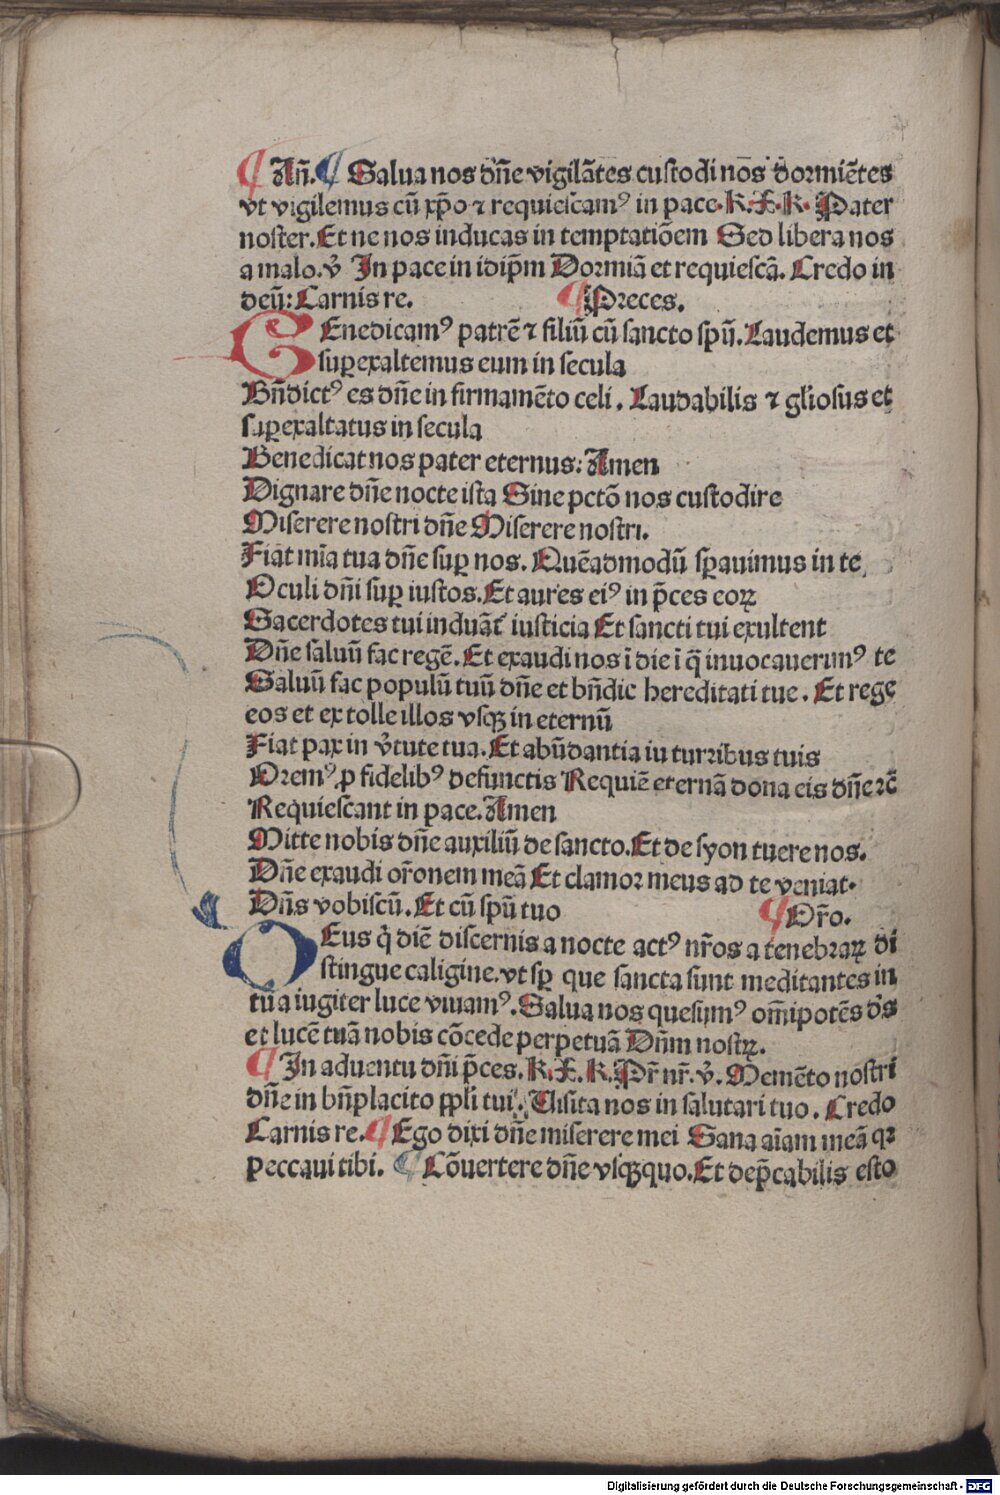 ¶ Añ. ¶ Salua nos dñe vigilãtes custodi nos dormiẽtes
vt vigilemus cũ xp̃o ⁊ requiescamꝰ in pace. k. X. k. Pater
noster. Et ne nos inducas in temptatiõem Sed libera nos
a malo. v̾ In pace in idip̃m Dormiã et requiescã. Credo in
deũ: Carnis re. ¶ Preces.
BEnedicamꝰ patrẽ ⁊ filiũ cũ sancto spũ. Laudemus et
suꝑexaltemus eum in secula
Bñdictꝰ es dñe in firmamẽto celi. Laudabilis ⁊ gl̃iosus et
suꝑexaltatus in secula
Benedicat nos pater eternus: Amen
Dignare dñe nocte ista Sine pctõ nos custodire
Miserere nostri dñe Miserere nostri.
Fiat mĩa tua dñe suꝑ nos. Quẽadmodũ sꝑauimus in te
Oculi dñi suꝑ iustos. Et aures eiꝰ in p̃ces eoꝝ
Sacerdotes tui induãt᷑ iusticia Et sancti tui exultent
Dñe saluũ fac regẽ. Et exaudi nos ĩ die ĩ q̃ inuocauerimꝰ te
Saluũ fac populũ tuũ dñe et bñdic hereditati tue. Et rege
eos et extolle illos vsqꝫ in eternũ
Fiat pax in v̾tute tua. Et abũdantia in turribus tuis
Oremꝰ ꝓ fidelibꝰ defunctis Requiẽ eternã dona eis dñe ⁊c̃
Requiescant in pace. Amen
Mitte nobis dñe auxiliũ de sancto. Et de syon tuere nos.
Dñe exaudi or̃onem meã Et clamor meus ad te veniat.
Dñs vobiscũ. Et cũ spũ tuo ¶ Or̃o.
DEus q̇ diẽ discernis a nocte actꝰ nr̃os a tenebraꝝ di
stingue caligine. vt sꝑ que sancta sunt meditantes in
tua iugiter luce viuamꝰ. Salua nos quesumꝰ om̃ipotẽs d̾s
et lucẽ tuã nobis cõcede perpetuã Dñm nostꝝ.
¶ In aduentu dñi p̃ces. k. X. k. Pr̃ nr̃. v̾. Memẽto nostri
dñe in bñplacito ppl̃i tui. Uisita nos in salutari tuo. Credo
Carnis re. ¶ Ego dixi dñe miserere mei Sana aĩam meã qꝛ
peccaui tibi. ¶ Cõuertere dñe vsqꝫquo. Et dep̃cabilis esto
Digitalisierung gefördert durch die Deutsche Forschungsgemeinschaft - DFG